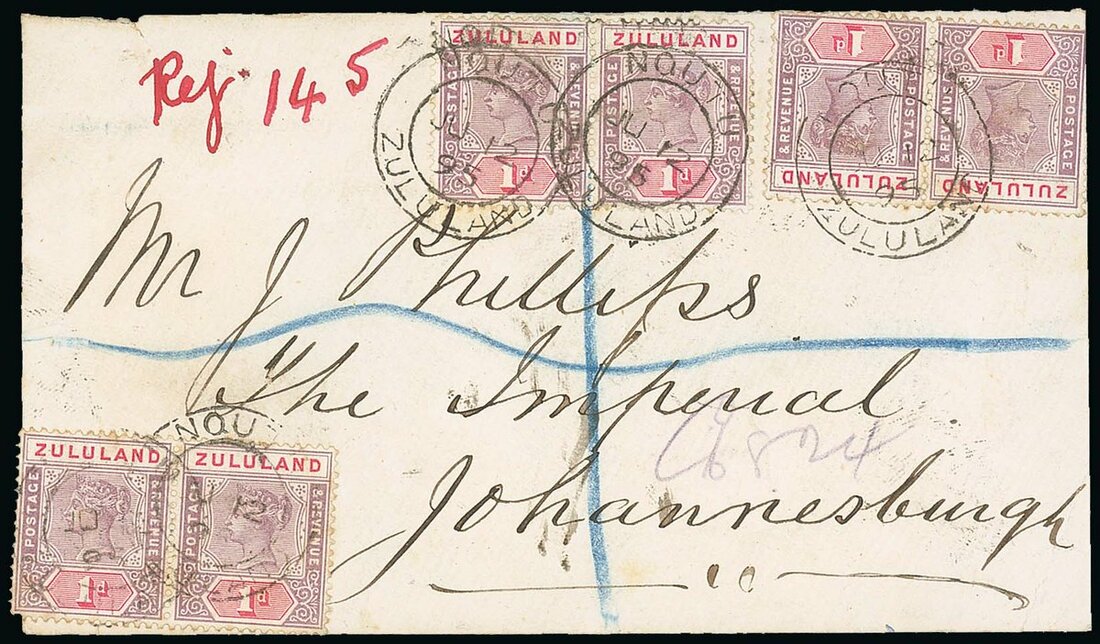 Reg 145
ZULULAND
POSTAGE & REVENUE
1d
ZULULAND
POSTAGE & REVENUE
1d
ZULULAND
POSTAGE & REVENUE
1d
ZULULAND
POSTAGE & REVENUE
1d
NQUTU
JU 12
95
ZULULAND
NQUTU
JU 12
95
ZULULAND
12
95
ZULULAND
Mr J Phillips
The Imperial
Johannesburgh
NQU
12
ZULULAND
POSTAGE & REVENUE
1d
ZULULAND
POSTAGE & REVENUE
1d